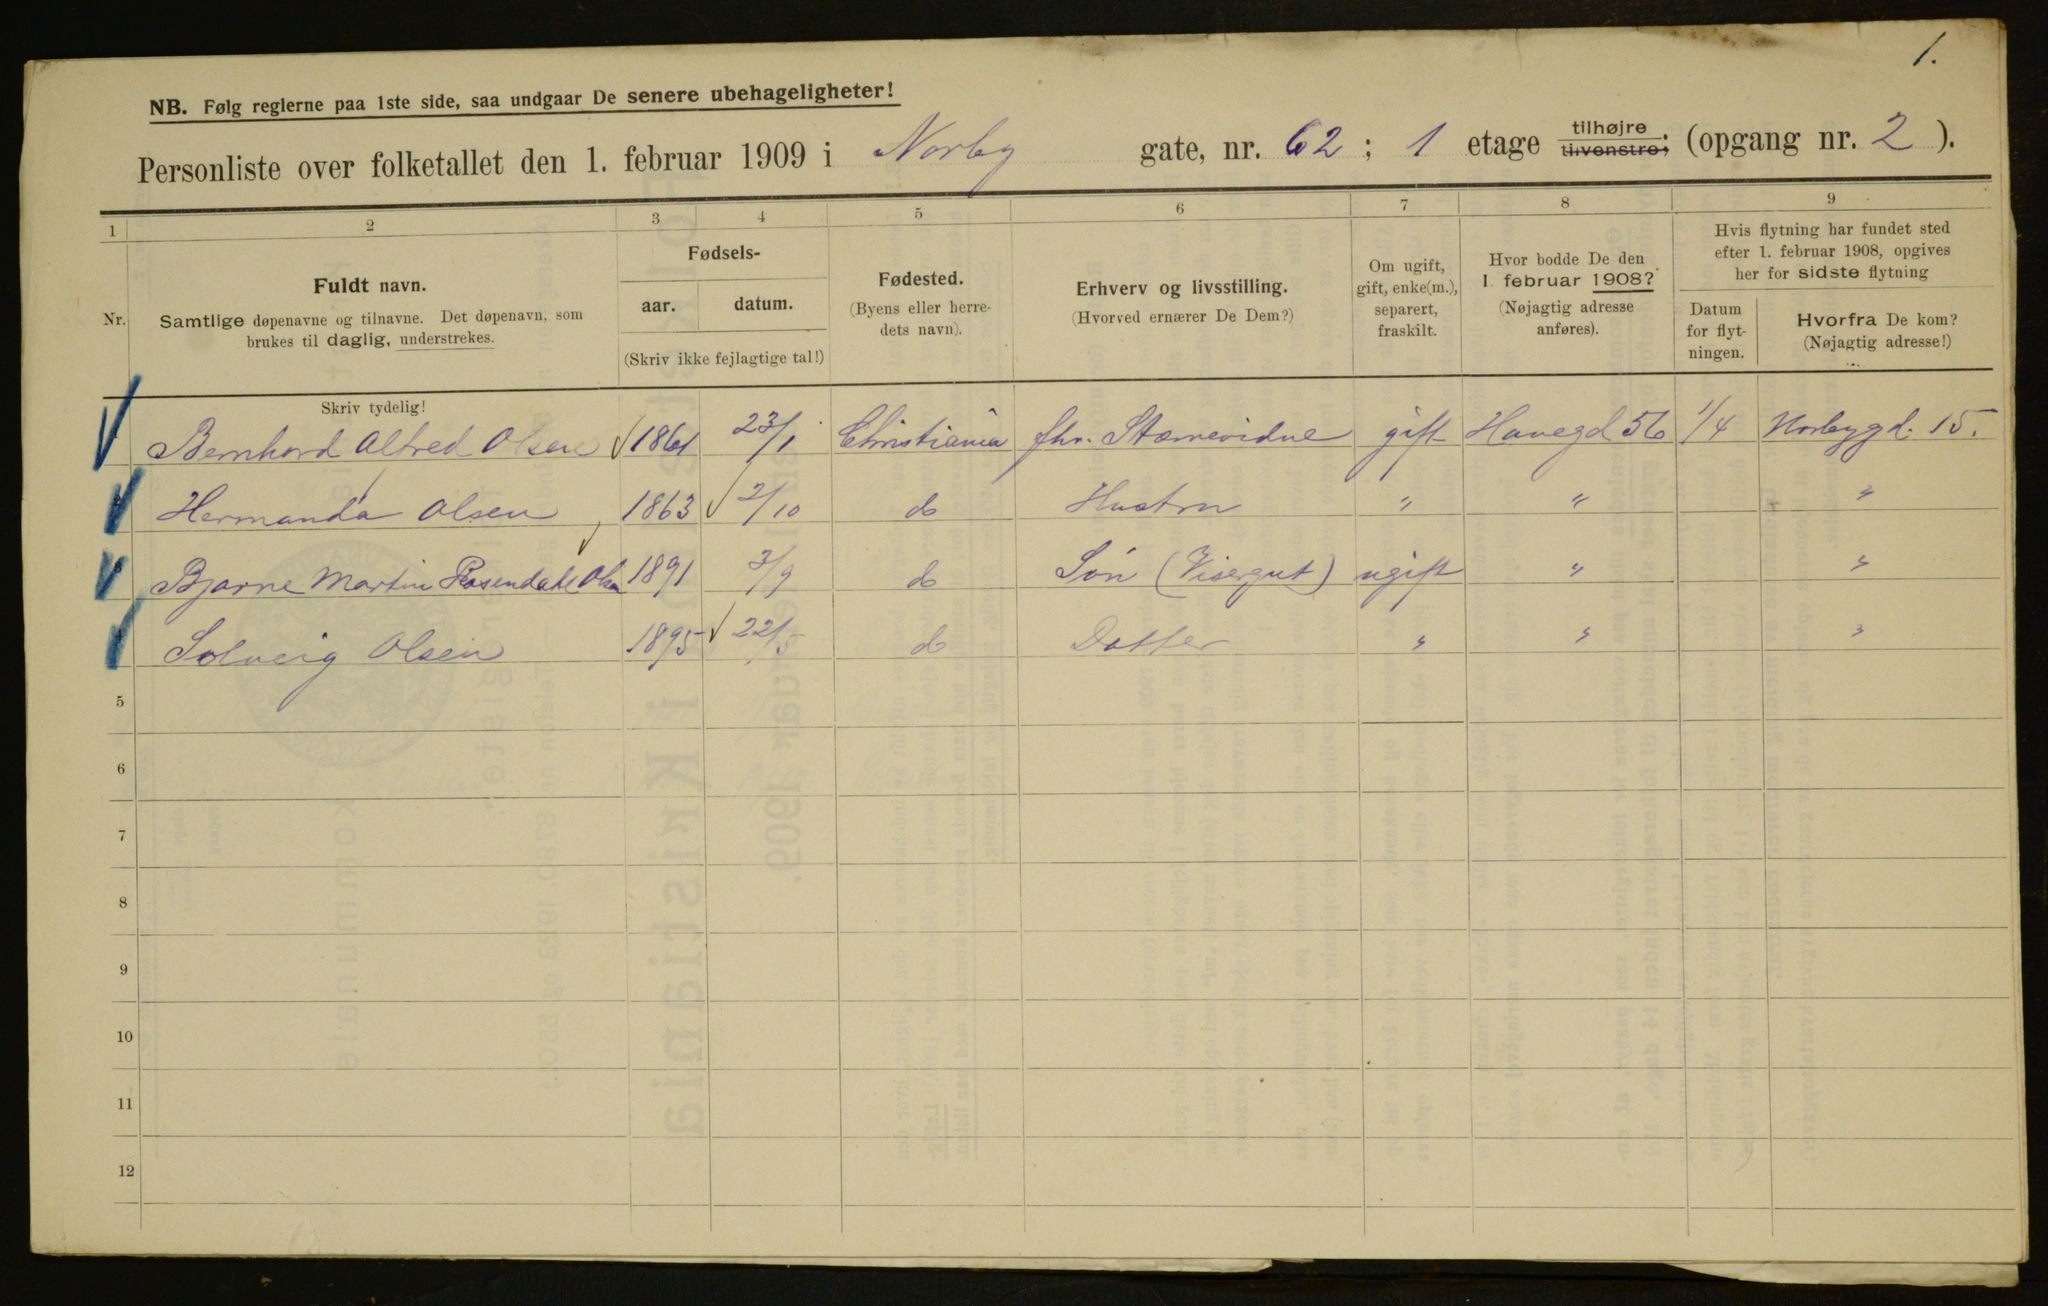 1.
NB. Følg reglerne paa 1ste side, saa undgaar De senere ubehageligheter!
Personliste over folketallet den 1. februar 1909 i Norby gate, nr. 62; 1 etage tilhøjre tilvenstre; (opgang nr. 2).
1 2 3 4 5 6 7 8 9
Nr.
Fuldt navn.
Samtlige døpenavne og tilnavne. Det døpenavn, som
brukes til daglig, understrekes.
Fødsels-
aar. datum.
(Skriv ikke fejlagtige tal!)
Fødested.
(Byens eller herre-
dets navn).
Erhverv og livsstilling.
(Hvorved ernærer De Dem?)
Om ugift,
gift, enke(m.),
separert,
fraskilt.
Hvor bodde De den
1. februar 1908?
(Nøjagtig adresse
anføres).
Hvis flytning har fundet sted
efter 1. februar 1908, opgives
her for sidste flytning
Datum
for flyt-
ningen.
Hvorfra De kom?
(Nøjagtig adresse!)
Skriv tydelig!
Bernhard Alfred Olsen 1861 23/1 Christiania fhv. gift Havegd 56 1/4 Norbygd. 15.
Hermanda Olsen 1863 2/10 do Hustru " " "
Bjarne Martin Rosendahl Olsen 1891 3/9 do Søn (Visergut) ugift " "
Solveig Olsen 1895 22/5 do Datter " " "
5
6
7
8
9
10
11
12